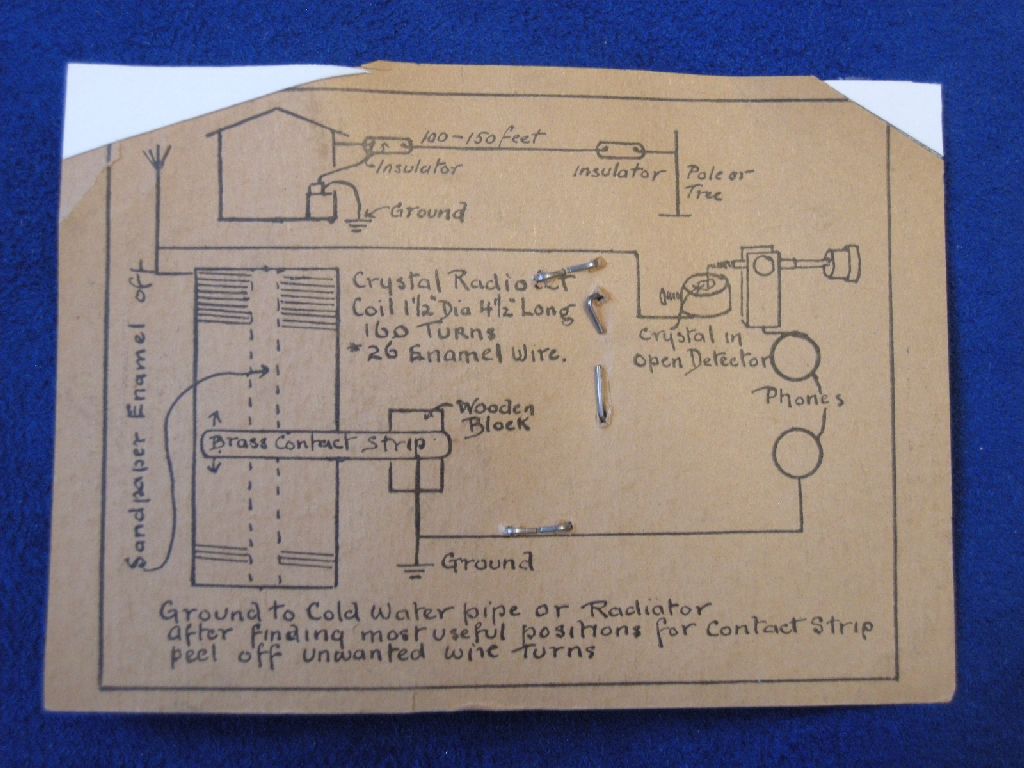 100-150 feet
Insulator
Insulator
Pole or
Tree
Ground
Sandpaper Enamel of
Crystal Radio
Coil 1½" Dia 4½" Long
160 Turns
* 26 Enamel Wire.
Crystal in
open Detector
Phones
Wooden
Block
Brass Contact Strip
Ground
Ground to Cold Water pipe or Radiator
After finding most useful positions for Contact Strip
peel off unwanted wire turns